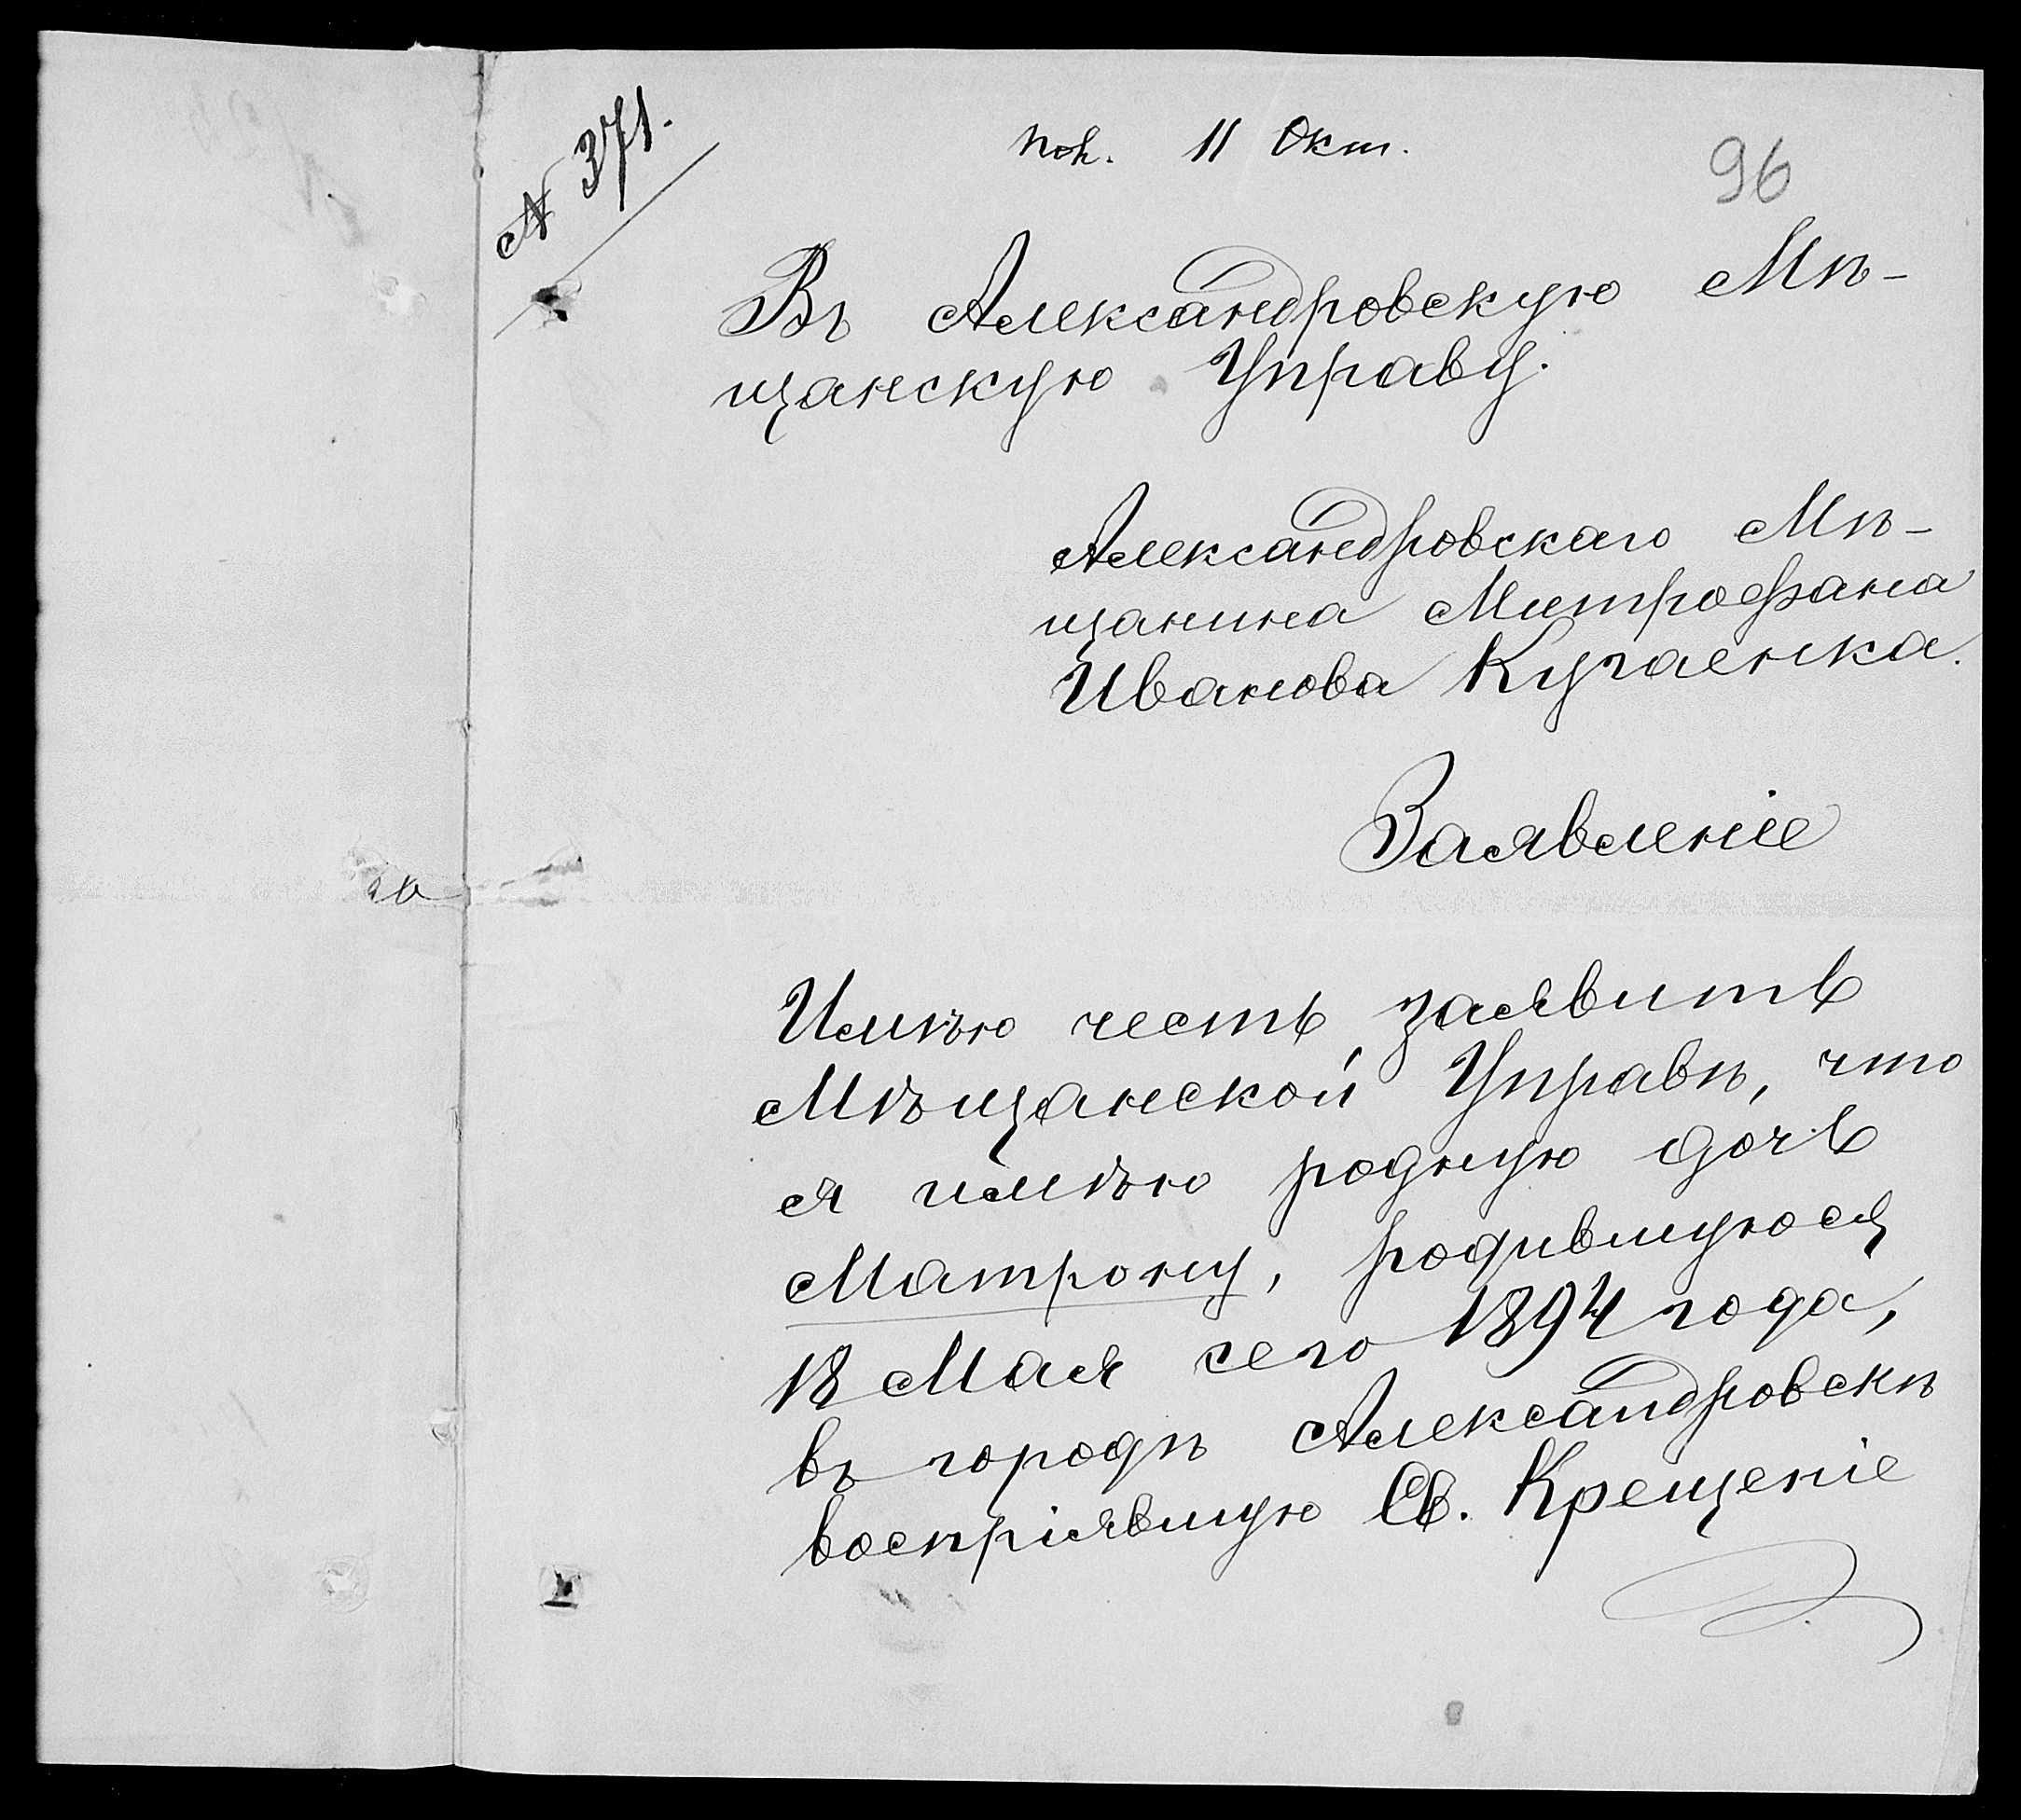 N 371.
пол. 11 Окт.
96
Въ Александровскую Мѣ-
щанскую Управу.
Александровскаго Мѣ-
щанина Митрофана
Иванова Кугаенка.
Заявленіе
Имѣю честь заявить
Мѣщанской Управѣ, что
я имѣю родную дочь
Матрону, родившуюся
18 Мая сего 1894 года,
въ городѣ Александровскѣ
воспріявшую Св. Крещеніе